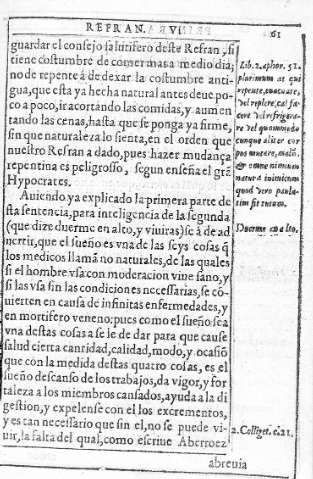 REFRAN. VI.
61
guardar el consejo salutifero deste Refran, si
tiene costumbre de comer mas a medio dia,
no de repente á de dexar la costumbre anti-
gua, que esta ya hecha natural antes deue po-
co a poco, ir acortãdo las comidas, y aumen
tando las cenas, hasta que se ponga ya firme,
sin que naturaleza lo sienta, en el orden que
nuestro Refran a dado, pues hazer mudança
repentina es peligroso, segun enseña el grã
Hypocrates.
Auiendo ya explicado la primera parte de
sta sentencia, para inteligencia de la segunda
(que dize duerme en alto, y viuiras) se á de ad
uertir, que el sueño es vna de las seys cosas q̃
los medicos llamã no naturales, de las quales
si el hombre vsa con moderacion viue sano, y
si las vsa sin las condiciones necessarias, se cõ-
uierten en causa de infinitas enfermedades, y
en mortifero veneno: pues como el sueño sea
vna destas cosas a se le de dar para que cause
salud cierta cantidad, calidad, modo, y ocasiõ
que con la medida destas quatro cosas, es el
sueño descanso de los trabajos, da vigor, y for
taleza a los miembros cansados, ayuda a la di
gestion, y expelense con el los excrementos,
y es tan necessario que sin el, no se puede vi-
uir, la falta del qual, como escriue Aberroez
abreuia
Lib. 2. aphor. 51.
plurimum at que
repente, euacuare,
vel replere, cal fa
cere vel refrigera-
re vel quomodo
cunque aliter cor
pus mouere, malũ,
& omne nimium
naturæ inimicum
quod vero paula-
tim fit tutum.
Duerme en alto.
2. Colliget. c. 21.